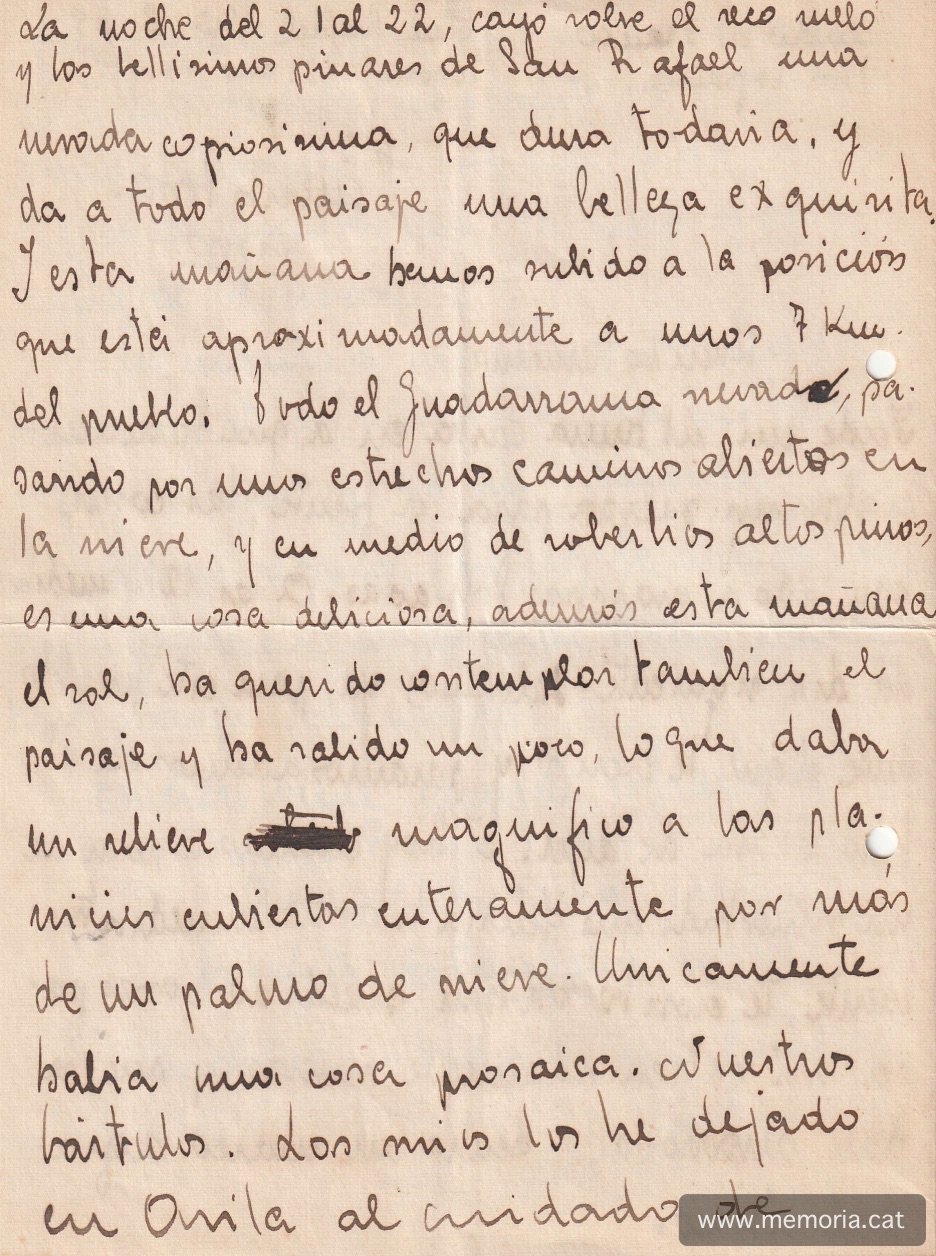 La noche del 21 al 22, cayó sobre el seco suelo
y los bellisimos pinares de San Rafael una
nevada copiosisima, que dura todavia, y
da a todo el paisaje una belleza exquisita.
Y esta mañana hemos subido a la posición
que está aproximadamente a unos 7 Km.
del pueblo. Todo el Guadarrama nevado, pa-
sando por unos estrechos caminos abiertos en
la nieve, y en medio de robertios altos pinos,
es una cosa deliciosa, además esta mañana
el sol, ha querido contemplar tambien el
paisaje y ha salido un poco, lo que daba
un relieve magnifico a las pla-
nicies cubiertas enteramente por más
de un palmo de nieve. Unicamente
habia una cosa prosaica. Nuestros
bártulos. Los mios los he dejado
en Avila al cuidado de
www.memoria.cat